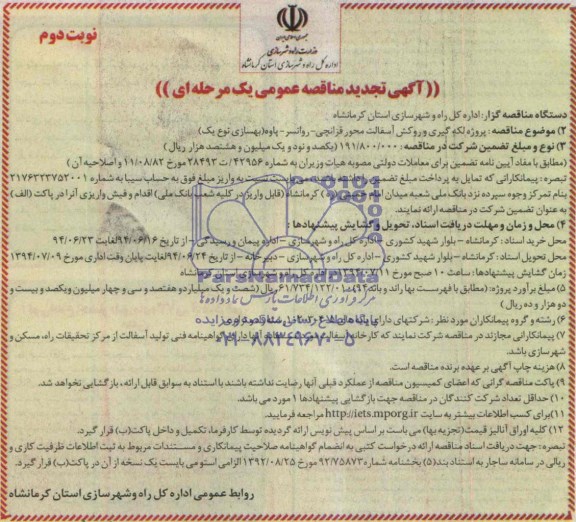 نوبت دوم
جمهوری اسلامی ایران
وزارت راه و شهرسازی
اداره کل راه و شهرسازی استان کرمانشاه
((آگهی تجدید مناقصه عمومی یک مرحله ای))
دستگاه مناقصه گزار: اداره کل راه و شهرسازی استان کرمانشاه
۲) موضوع مناقصه: پروژه لکه گیری و روکش آسفالت محور قزانچی- روانسر - پاوه(بهسازی نوع یک)
۳) نوع و مبلغ تضمین شرکت در مناقصه: ۱۹۱/۸۰۰/۰۰۰ (یکصد و نود و یک میلیون و هشتصد هزار ریال)
(مطابق با مفاد آیین نامه تضمین برای معاملات دولتی مصوبه هیات وزیران به شماره ۴۲۹۵۶/ت ۲۸۴۹۳ مورخ ۱۱/۰۸/۸۲ و اصلاحیه آن)
تبصره: پیمانکارانی که تمایل به پرداخت مبلغ تضمین نسبت به واریز مبلغ فوق به حساب سیبا به شماره ۲۱۷۶۴۲۳۷۵۲۰۰۱
بنام تمرکز وجوه سپرده نزد بانک ملی شعبه میدان کرمانشاه (قابل واریز در کلیه شعب بانک ملی) اقدام و فیش واریزی آنرا در پاکت (الف)
به عنوان تضمین شرکت در مناقصه ارائه نمایند.
۴) محل و زمان و مهلت دریافت اسناد، تحویل و گشایش پیشنهادها:
محل خرید اسناد: کرمانشاه - بلوار شهید کشوری - اداره کل راه و شهرسازی - اداره پیمان و رسیدگی - از تاریخ ۹۴/۰۶/۱۶ لغایت ۹۴/۰۶/۲۳
محل تحویل اسناد: کرمانشاه - بلوار شهید کشوری - اداره کل راه و شهرسازی - دبیرخانه - از تاریخ ۹۴/۰۶/۲۴ لغایت پایان وقت اداری مورخ ۱۳۹۴/۰۷/۰۹
زمان گشایش پیشنهادها: ساعت ۱۰ صبح مورخ ۱۳۹۴/۰۷/۱۱ اداره کل راه و شهرسازی استان کرمانشاه
۵) مبلغ برآورد پروژه: (مطابق با فهرست بها راه و باند ۱۳۹۴) ۶۱/۷۳۴/۱۲۲/۰۱۰ ریال (شصت و یک میلیارد و هفتصد و سی و چهار میلیون و یکصد و بیست و
دو هزار و ده ریال)
۶) رشته و گروه پیمانکاران مورد نظر: شرکتهای دارای
۷) پیمانکارانی مجازند در مناقصه شرکت نمایند که کارخانه آسفالت گواهینامه فنی تولید آسفالت از مرکز تحقیقات راه، مسکن و
شهرسازی باشد.
۸) هزینه چاپ آگهی بر عهده برنده مناقصه است.
۹) پاکت مناقصه گرانی که اعضای کمیسیون مناقصه از عملکرد قبلی آنها رضایت نداشته باشند با استناد به سوابق قابل ارائه، بازگشایی نخواهد شد.
۱۰) حداقل تعداد شرکت کنندگان در مناقصه جهت بازگشایی پیشنهادها ۱ مورد می باشد.
۱۱) برای کسب اطلاعات بیشتر به سایت http://iets.mporg.ir مراجعه فرمایید.
۱۲) کلیه اوراق آنالیز قیمت (تجزیه بها) می باست بر اساس پیش نویس ارائه گردیده توسط کارفرما، تکمیل و داخل پاکت(ب) قرار گیرد.
تبصره: جهت دریافت اسناد مناقصه ارائه درخواست کتبی به انضمام گواهینامه صلاحیت پیمانکاری و مستندات مربوط به ثبت اطلاعات ظرفیت کاری و
ریالی در سامانه ساجار به استناد بند(۵) بخشنامه شماره ۹۲/۷۵۸۷۳ مورخ ۱۳۹۲/۰۸/۲۵ الزامی است و می بایست یک نسخه از آن در پاکت(ب) قرار گیرد.
روابط عمومی اداره کل راه و شهرسازی استان کرمانشاه
ParsNamadData
مرکز فرآوری اطلاعات پارس نماد داده ها
پایگاه اطلاع رسانی مناقصه و مزایده
۰۲۱-۸۸۳۴۹۶۷۰-۵